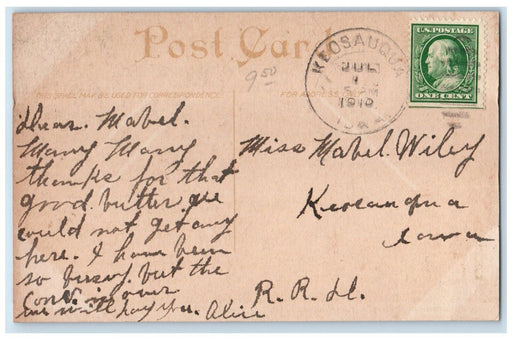 Post Card
THIS SPACE MAY BE USED FOR CORRESPONDENCE
FOR ADDRESS
KEOSAUQUA
JUL
1
PM
1910
IOWA
U.S. POSTAGE
ONE CENT
9.50
Dear. Mabel.
Many Many
thanks for that
good. butter. we
could not get any
here. I have been
so bussy. but the
is our
we will pay you. Alice
Miss Mabel. Wiley
Keosauqua
Iowa
R. R.